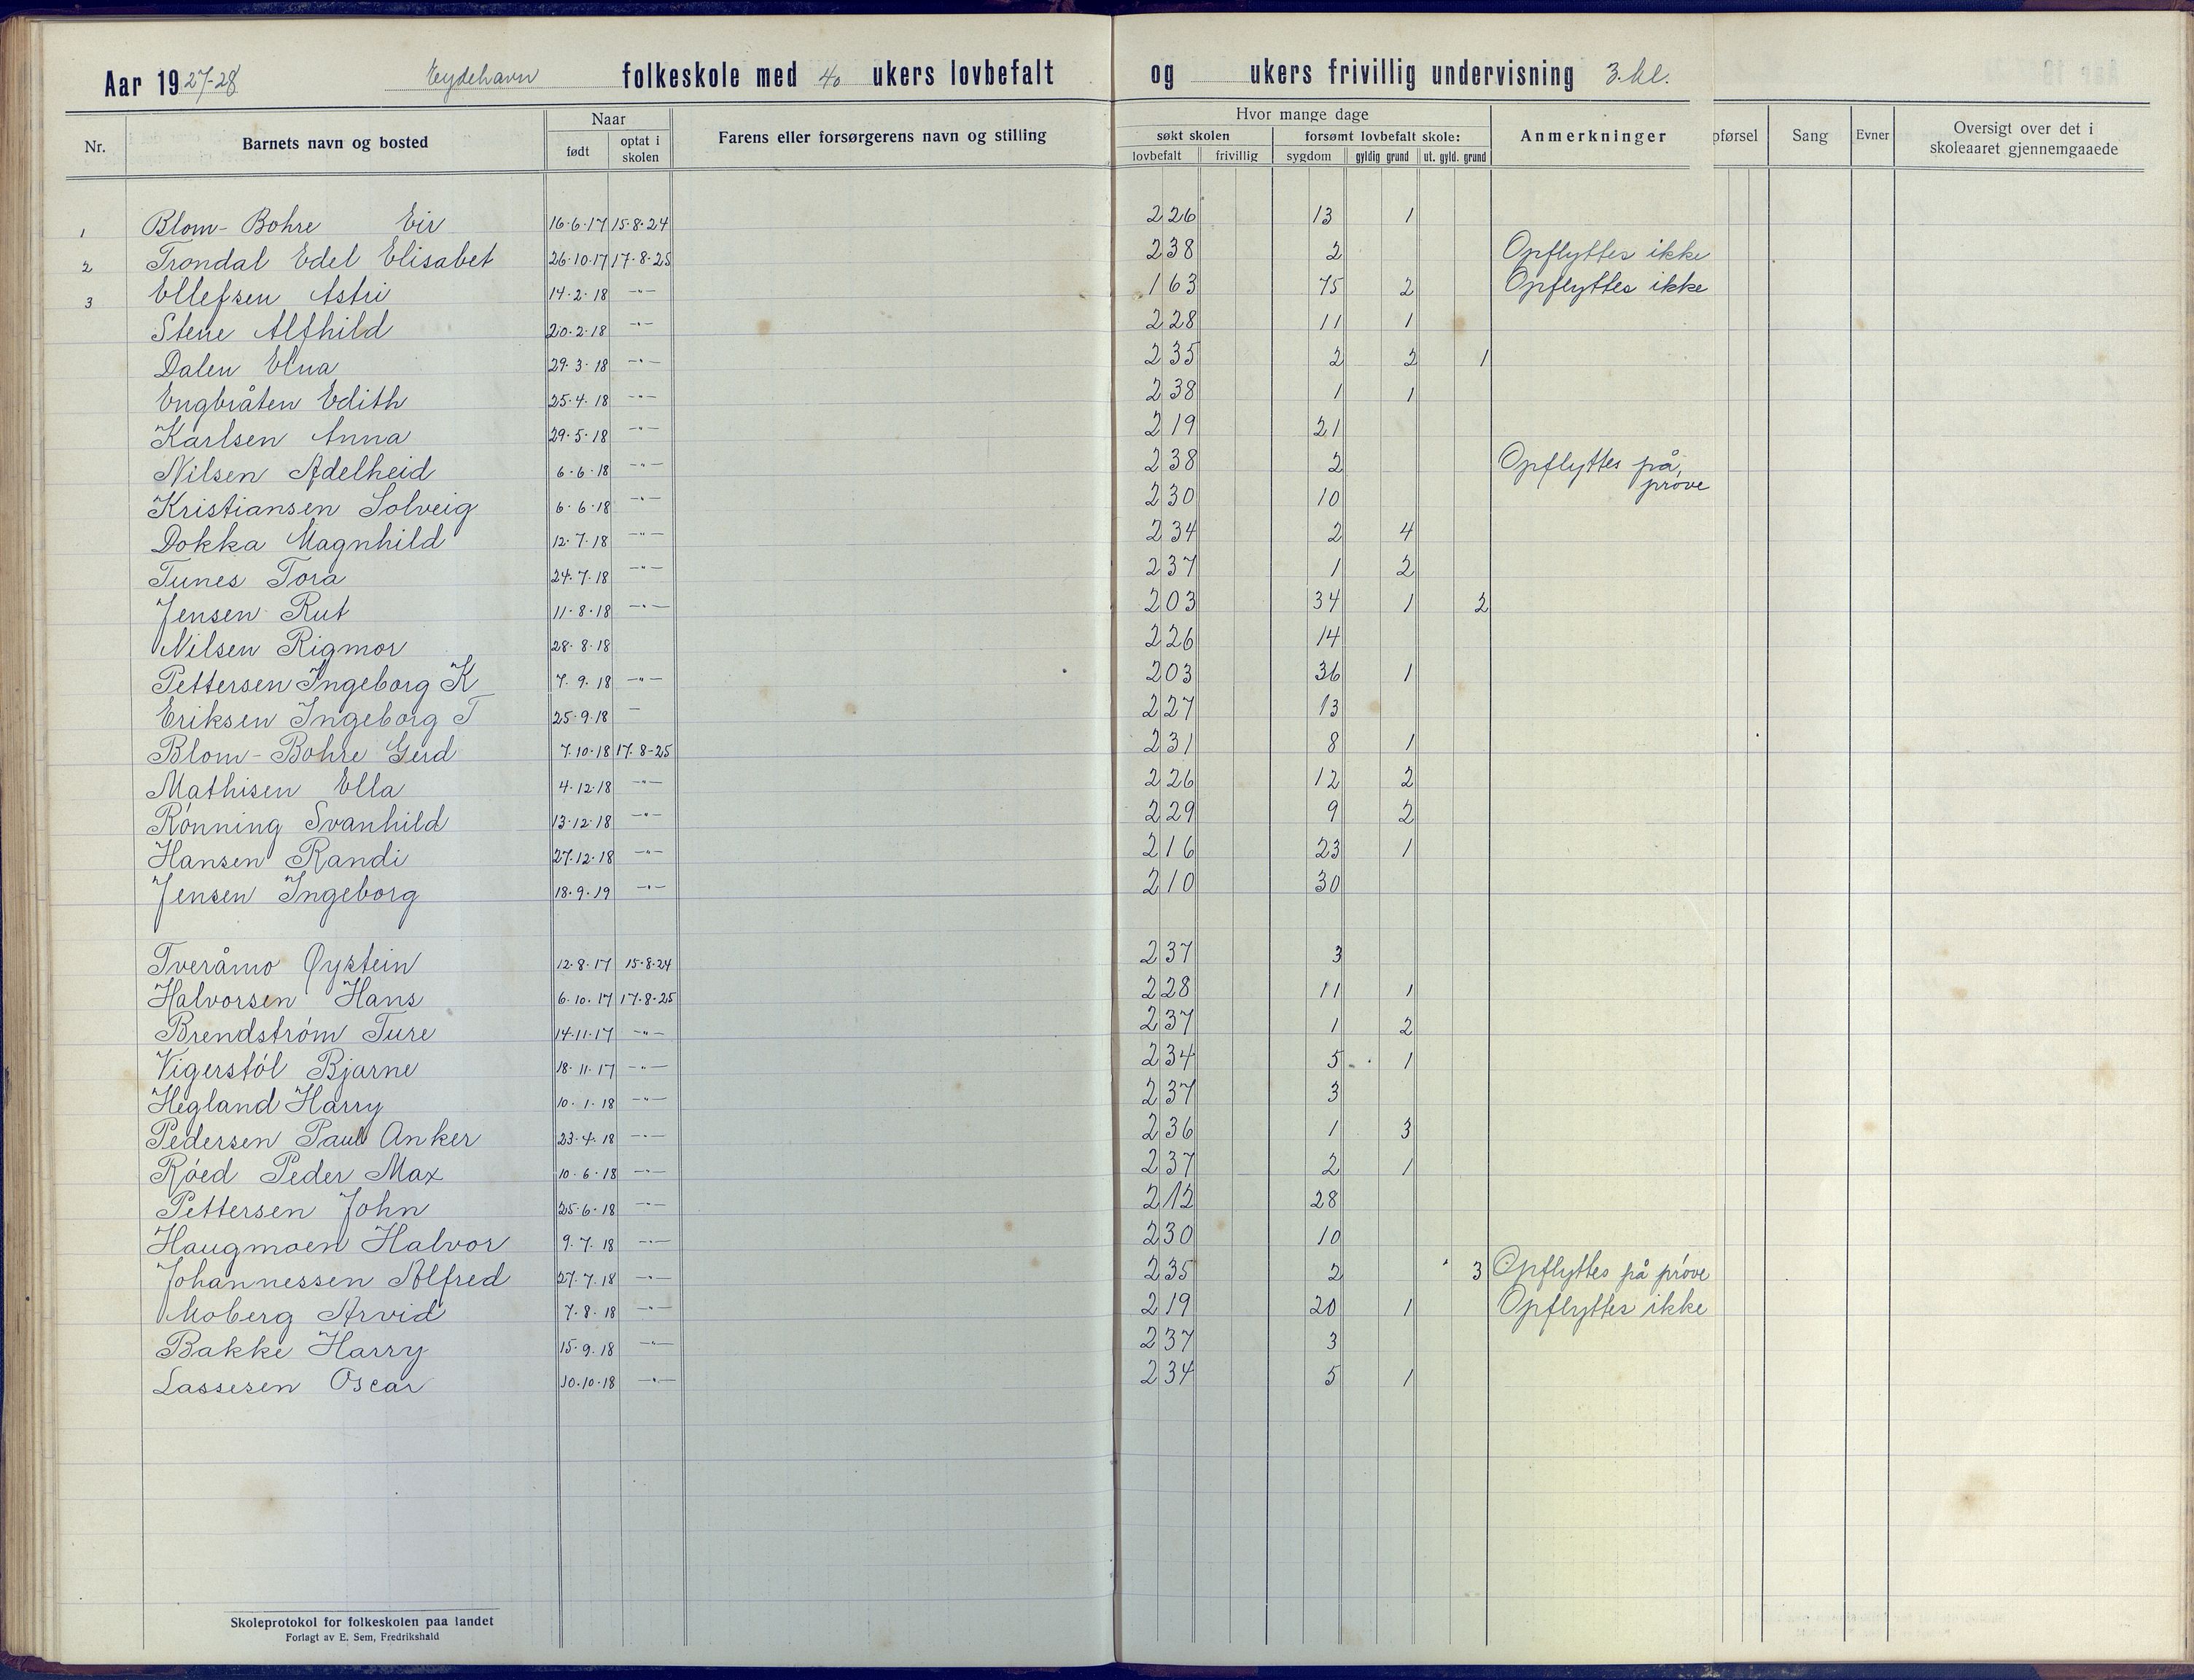 Aar 1927-28 Eydehavn folkeskole med 40 ukers lovbefalt og ukers frivillig undervisning 3. kl.
Nr. Barnets navn og bosted Naar født optat i skolen Farens eller forsørgerens navn og stilling Hvor mange dage søkt skolen lovbefalt frivillig forsømt lovbefalt skole: sygdom gyldig grund ut. gyld. grund Anmerkninger pførsel Sang Evner Oversigt over det i skoleaaret gjennemgaaede
1 Blom-Bohre Eir 16.6.17 15.8.24 226 13 1
2 Trondal Edel Elisabet 26.10.17 17.8.25 238 2 Opflyttes ikke
3 Ellefsen Astri 14.2.18 -"- 163 75 2 Opflyttes ikke
Stene Alfhild 20.2.18 -"- 228 11 1
Dalen Elna 29.3.18 -"- 235 2 2 1
Engbråten Edith 25.4.18 -"- 238 1 1
Karlsen Anna 29.5.18 -"- 219 21
Nilsen Adelheid 6.6.18 -"- 238 2 Opflyttes på prøve
Kristiansen Solveig 6.6.18 -"- 230 10
Dokka Magnhild 12.7.18 -"- 234 2 4
Tunes Tora 24.7.18 -"- 237 1 2
Jensen Rut 11.8.18 -"- 203 34 1 2
Nilsen Rigmor 28.8.18 226 14
Pettersen Ingeborg K 7.9.18 -"- 203 36 1
Eriksen Ingeborg T 25.9.18 - 227 13
Blom-Bohre Gerd 7.10.18 17.8-25 231 8 1
Mathisen Ella 4.12.18 -"- 226 12 2
Rønning Svanhild 13.12.18 -"- 229 9 2
Hansen Randi 27.12.18 -"- 216 23 1
Jensen Ingeborg 18.9.19 -"- 210 30
Tveråmo Øystein 12.8.17 15.8.24 237 3
Halvorsen Hans 6.10.17 17.8.25 228 11 1
Brendstrøm Ture 14.11.17 -"- 237 1 2
Vigerstøl Bjarne 18.11.17 -"- 234 5 1
Hegland Harry 10.1.18 -"- 237 3
Pedersen Paul Anker 23.4.18 -"- 236 1 3
Røed Peder Max 10.6.18 -"- 237 2 1
Pettersen John 25.6.18 -"- 212 28
Haugmoen Halvor 9.7.18 -"- 230 10
Johannessen Alfred 27.7.18 -"- 235 2 3 Opflyttes på prøve
Moberg Arvid 7.8.18 -"- 219 20 1 Opflyttes ikke
Bakke Harry 15.9.18 -"- 237 3
Lassesen Oscar 10.10.18 -"- 234 5 1
Skoleprotokol for folkeskolen paa landet
Forlagt av E. Sem, Fredrikshald